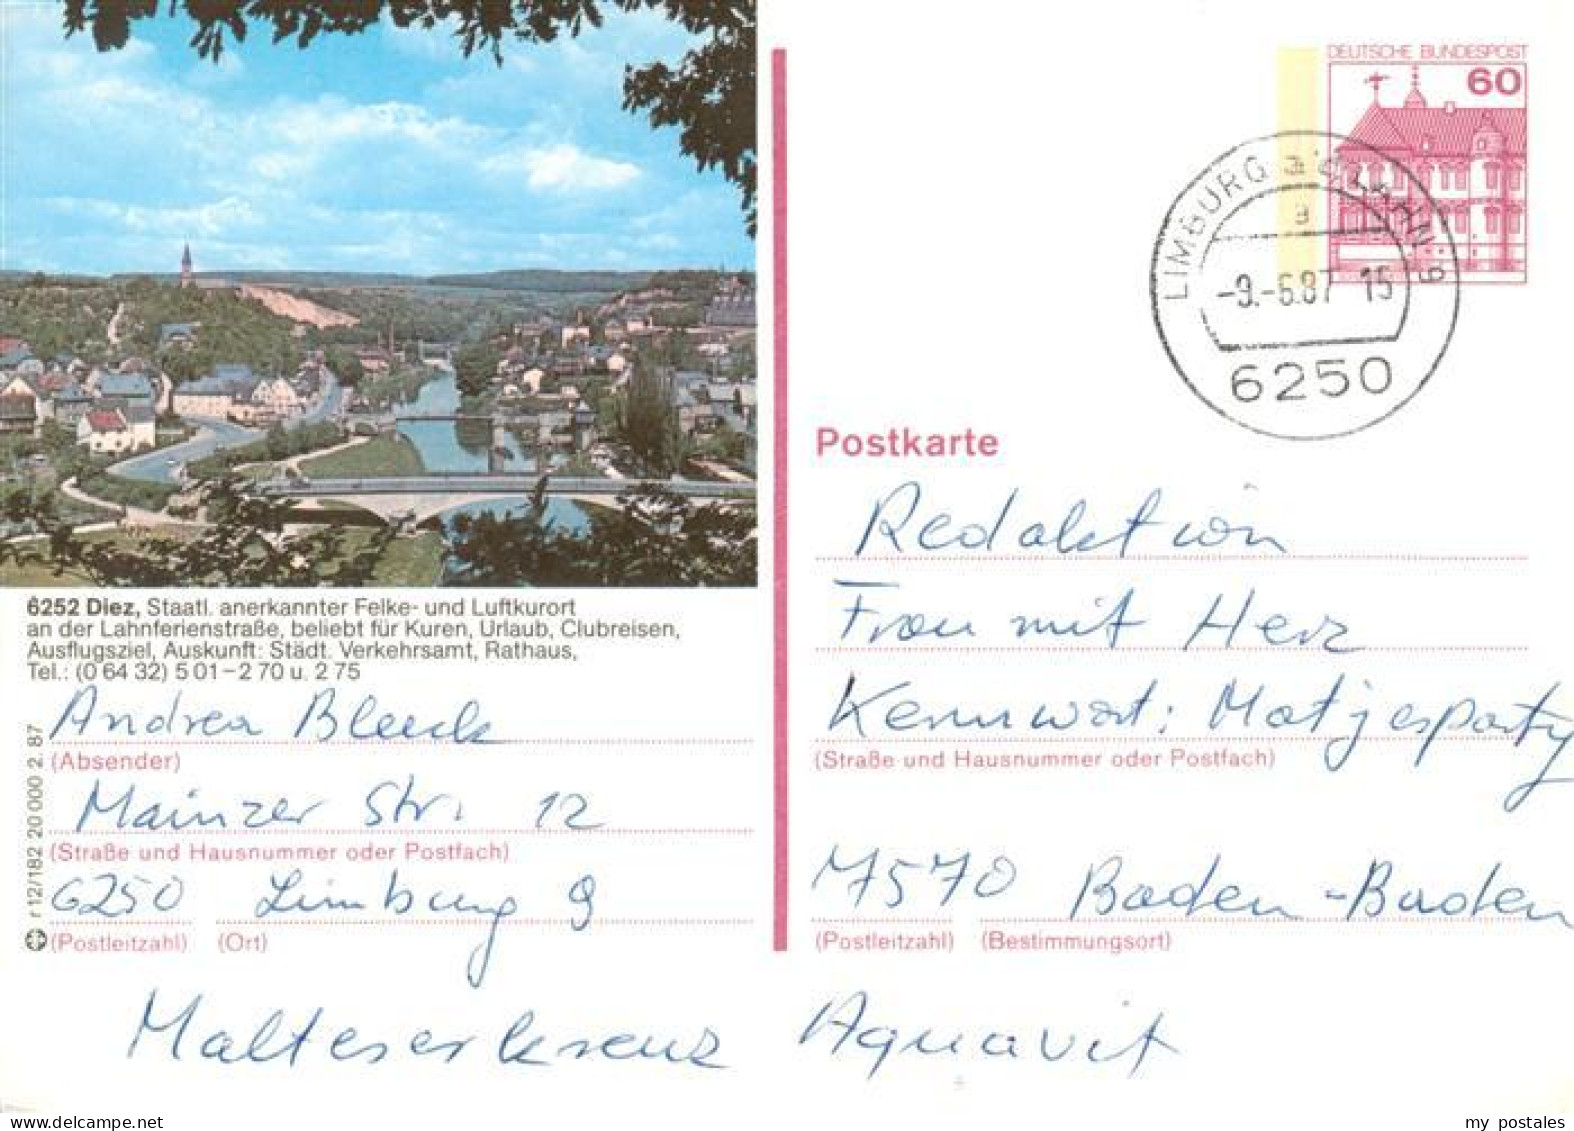 DEUTSCHE BUNDESPOST
60
LIMBURG a.d. LAHN 9
a
-9.-6.87 15
6250
Postkarte
Redaktion
Frau mit Herz
Kennwort: Matjesparty
(Straße und Hausnummer oder Postfach)
7570 Baden-Baden
(Postleitzahl) (Bestimmungsort)
6252 Diez, Staatl. anerkannter Felke- und Luftkurort
an der Lahnferienstraße, beliebt für Kuren, Urlaub, Clubreisen,
Ausflugsziel, Auskunft: Städt. Verkehrsamt, Rathaus,
Tel.: (0 64 32) 5 01 – 2 70 u. 2 75
Andrea Bleeck
(Absender)
Mainzer Str. 12
(Straße und Hausnummer oder Postfach)
6250 Limburg 9
(Postleitzahl) (Ort)
r 12/182 20 000 2. 87
Malteserkreuz Aquavit
my postales